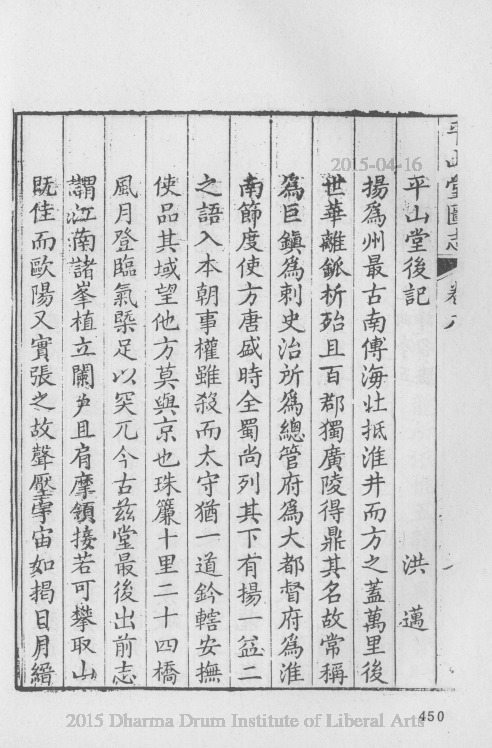 平山堂圖志 卷八
平山堂後記 洪邁
揚爲州最古南傅海北抵淮井而方之蓋萬里後
世華離鈲析殆且百郡獨廣陵得鼎其名故常稱
爲巨鎮爲刺史治所爲總管府爲大都督府爲淮
南節度使方唐盛時全蜀尚列其下有揚一益二
之語入本朝事權雖殺而太守猶一道鈐轄安撫
使品其域望他方莫與京也珠簾十里二十四橋
風月登臨氣槩足以突兀今古兹堂最後出前志
謂江南諸峯植立闌戶且肩摩領接若可攀取山
既佳而歐陽又實張之故聲壓宇宙如揭日月縉
2015-04-16
450
2015 Dharma Drum Institute of Liberal Arts